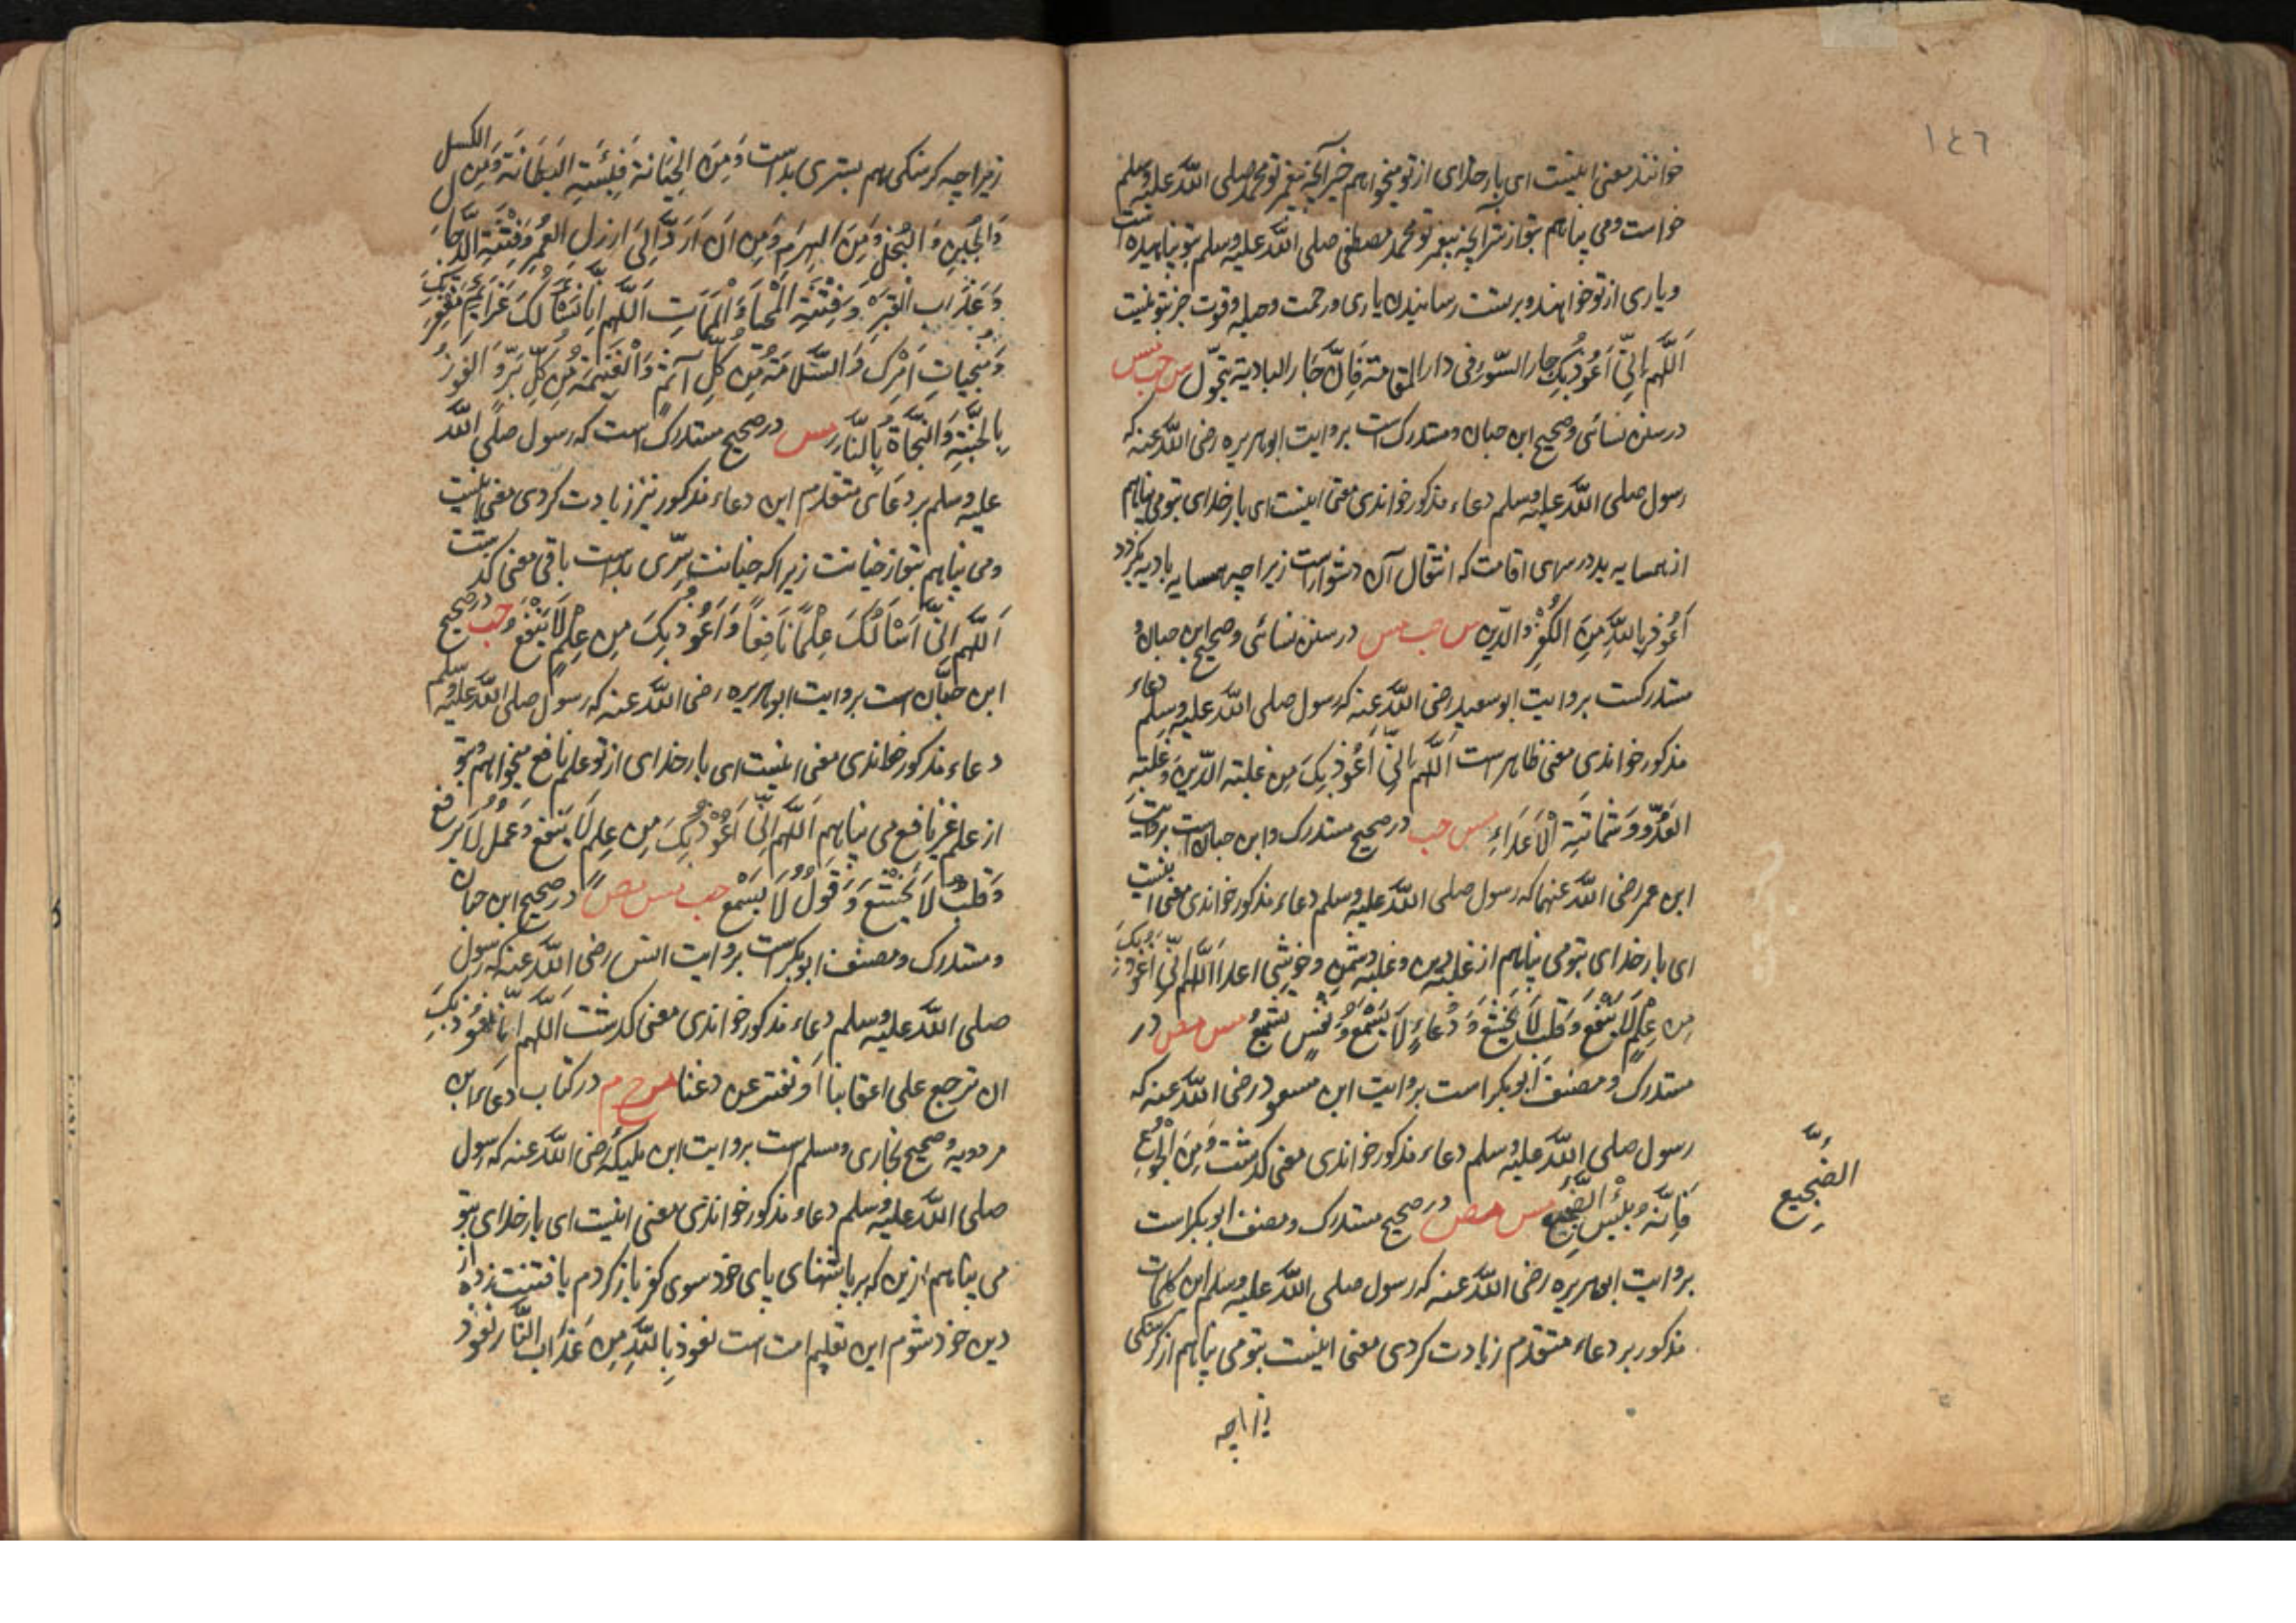 ١٤٦
خوانند معنی اینست ای بار خدای از تو میخواهم خیر آنچه پیغمبر تو محمد صلی الله علیه وسلم
خواست و می پناهم بتو از شر آنچه پیغمبر تو محمد مصطفی صلی الله علیه وسلم بتو پناهیده است
و یاری از تو خواهند و بر تست رسانیدن یاری و رحمت و حیله و قوت جز بتو نیست
اَللّهم اِنّی اَعُوذُ بِکَ جار السّوء فی دار المقامة فَاِنَّ جَار البادیة یتحوّل س حب مس
در سنن نسائی و صحیح ابن حبان و مستدرک است بروایت ابوهریره رضی الله عنه که
رسول صلی الله علیه وسلم دعاء مذکور خواندی معنی اینست ای بار خدای بتو می پناهم
از همسایه بد در سرای اقامت که انتقال آن دشوار است زیرا چه همسایه بادیه بگردد
اَعُوذ بِاللّهِ مِنَ الکُفْرِ وَ الدّین س حب مس در سنن نسائی و صحیح ابن حبان و
مستدرکست بروایت ابو سعید رضی الله عنه که رسول صلی الله علیه وسلم دعاء
مذکور خواندی معنی ظاهر است اَللّهم اِنّی اَعُوذُ بِکَ مِن غلبة الدّین وَ غلبة
العَدُوّ وَ شَماتَةِ الْاَعدَاءِ مس حب در صحیح مستدرک و ابن حبان است بروایت
ابن عمر رضی الله عنهما که رسول صلی الله علیه وسلم دعاء مذکور خواندی معنی اینست
ای بار خدای بتو می پناهم از غلبه دین و غلبه دشمن و خوشی اعدا اَللّهم اِنّی اَعُوذُ بِکَ
مِن عِلمٍ لَا یَنْفَعُ وَ قَلبٍ لَا یَخشَعُ وَ دُعاءٍ لَا یُسْمَعُ وَ نَفْسٍ لَا تَشبَعُ مس مص در
مستدرک و مصنف ابو بکر است بروایت ابن مسعود رضی الله عنه که
رسول صلی الله علیه وسلم دعاء مذکور خواندی معنی گذشت وَ مِنَ الْجُوعِ
فَاِنَّهُ بِئْسَ الضَّجِیع مس مص در صحیح مستدرک و مصنف ابو بکر است
الضَّجِیعِ
بروایت ابوهریره رضی الله عنه که رسول صلی الله علیه وسلم این کلمات
مذکور بر دعاء متقدم زیادت کردی معنی اینست بتو می پناهم از گرسنگی
زیراچه
زیراچه گرسنگی هم بستری بد است وَ مِنَ الخِیَانَةِ فَبِئْسَتِ البِطَانَة وَ مِنَ الکسل
وَ الجُبنِ وَ البُخلِ وَ مِنَ الهرَمِ وَ مِن اَن اُرَدَّ اِلیٰ ارذل العُمُرِ وَ فِتنَةِ الدَّجَّال
وَ عَذَابِ القَبْرِ وَ فِتْنَةِ المَحْیَا وَ المَمَاتِ اَللّهم اِنَّا نَسْاَلُکَ عَزَائِمَ مَغْفِرَتِکَ
وَ مُنْجِیاتِ اَمْرِکَ وَ السَّلَامَةَ مِن کُلِّ اِثْمٍ وَ الغَنِیمَةَ مِن کُلِّ بِرٍّ وَ الفَوزَ
بِالْجَنَّةِ وَ النَّجَاةَ بِالنَّارِ مس در صحیح مستدرک است که رسول صلی الله
علیه وسلم بر دعای متقدم این دعاء مذکور نیز زیادت کردی معنی اینست
و می پناهم بتو از خیانت زیراکه خیانت سِرّی بد است باقی معنی گذشت
اَللّهم اِنّی اَسْاَلُکَ عِلْمًا نَافِعًا وَ اَعُوذُ بِکَ مِن عِلمٍ لَا یَنْفَعُ حب در صحیح
ابن حبّان است بروایت ابوهریره رضی الله عنه که رسول صلی الله علیه وسلم
دعاء مذکور خواندی معنی اینست ای بار خدای از تو علم نافع میخواهم و بتو
از علم غیر نافع می پناهم اَللّهم اِنّی اَعُوذُ بِکَ مِن عِلمٍ لَا یَنفَعُ وَ عَمَلٍ لَا یُرفَع
وَ قَلبٍ لَا یَخشَعُ وَ قَولٍ لَا یُسْمَعُ حب مس مص در صحیح ابن حبان
و مستدرک و مصنف ابو بکر است بروایت انس رضی الله عنه که رسول
صلی الله علیه وسلم دعاء مذکور خواندی معنی گذشت اَللّهم اِنَّا نَعُوذُ بِکَ
ان نرجع علی اعقابنا اَو نفتن عن دیننا خ م در کتاب دعاء ابن
مردویه و صحیح بخاری و مسلم است بروایت ابن ملیکه رضی الله عنه که رسول
صلی الله علیه وسلم دعاء مذکور خواندی معنی اینست ای بار خدای بتو
می پناهم ازین که بر پاشنهای پای خود سوی کفر باز گردم یا فتنت زده از
دین خود شوم این تعلیم امت است نعوذ بِاللّهِ مِنَ عَذَاب النَّار نعوذ